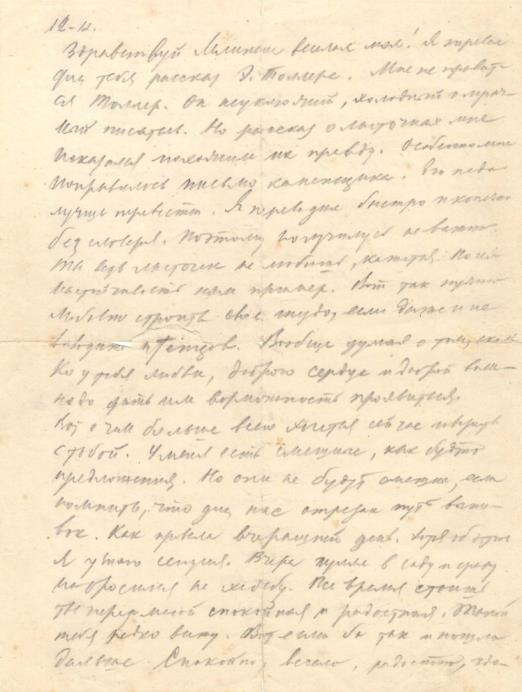 12-е.
Здравствуй веселая моя! Я перевел
для тебя рассказ Э. Толлера. Мне не нравит-
ся Толлер. Он неуклюжий, холодный и мрач-
ный писатель. Но рассказ о ласточках мне
показался похожим на правду. Особенно мне
понравилось письмо каменщика. Его надо
лучше перевести. Я переводил быстро и конечно
без словаря. Поэтому получилось не важно.
Ты ведь ласточек не любишь, кажется. Но их
настойчивость нам пример. Вот так нужно
строить свое гнездо, если даже и не
птенцов. Вообще думая о том, сколь
ко у тебя любви, доброго сердца и доброй воли -
надо дать им возможность проявиться.
Вот о чем больше всего хочется сейчас говорить
с тобой. У меня есть смешные, как будто
предложения. Но они не будут смешны, если
помнить, что для нас отрезан путь
Как провела вчерашний день. Хотя об этом
я узнаю сегодня. Вчера пришел в саду и сразу
набросился на Все время стоишь
ты передо мной спокойная и радостная. Такой
тебя редко вижу. Вот если бы так и пошло
дальше. Спокойно, весело, радостно,